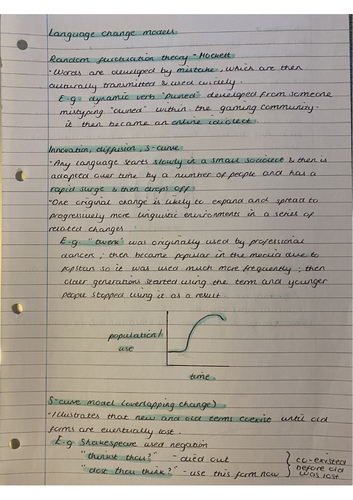 Language change models
Random fluctuation theory - Hockett
• Words are developed by mistake, which are then
culturally transmitted & used widely.
E.g. dynamic verb "pwned" developed from someone
mistyping "owned" within the gaming community.
it then became an online idiolect
Innovation, diffusion, S-curve
• Any language starts slowly in a small sociolect & then is
adopted over time by a number of people and has a
rapid surge & then drops off
• One original change is likely to expand and spread to
progressively more linguistic environments in a series of
related changes
E.g. "twerk" was originally used by professional
dancers, then became popular in the media due to
popstars so it was used much more frequently; then
older generations started using the term and younger
people stopped using it as a result.
population/
use
time
S-curve model (overlapping change)
• Illustrates that new and old terms coexist until old
forms are eventually lost.
E.g Shakespeare used negation
"thinkst thou?" - died out
"dost thou think?" - use this form now
co-existed
before old
was lost